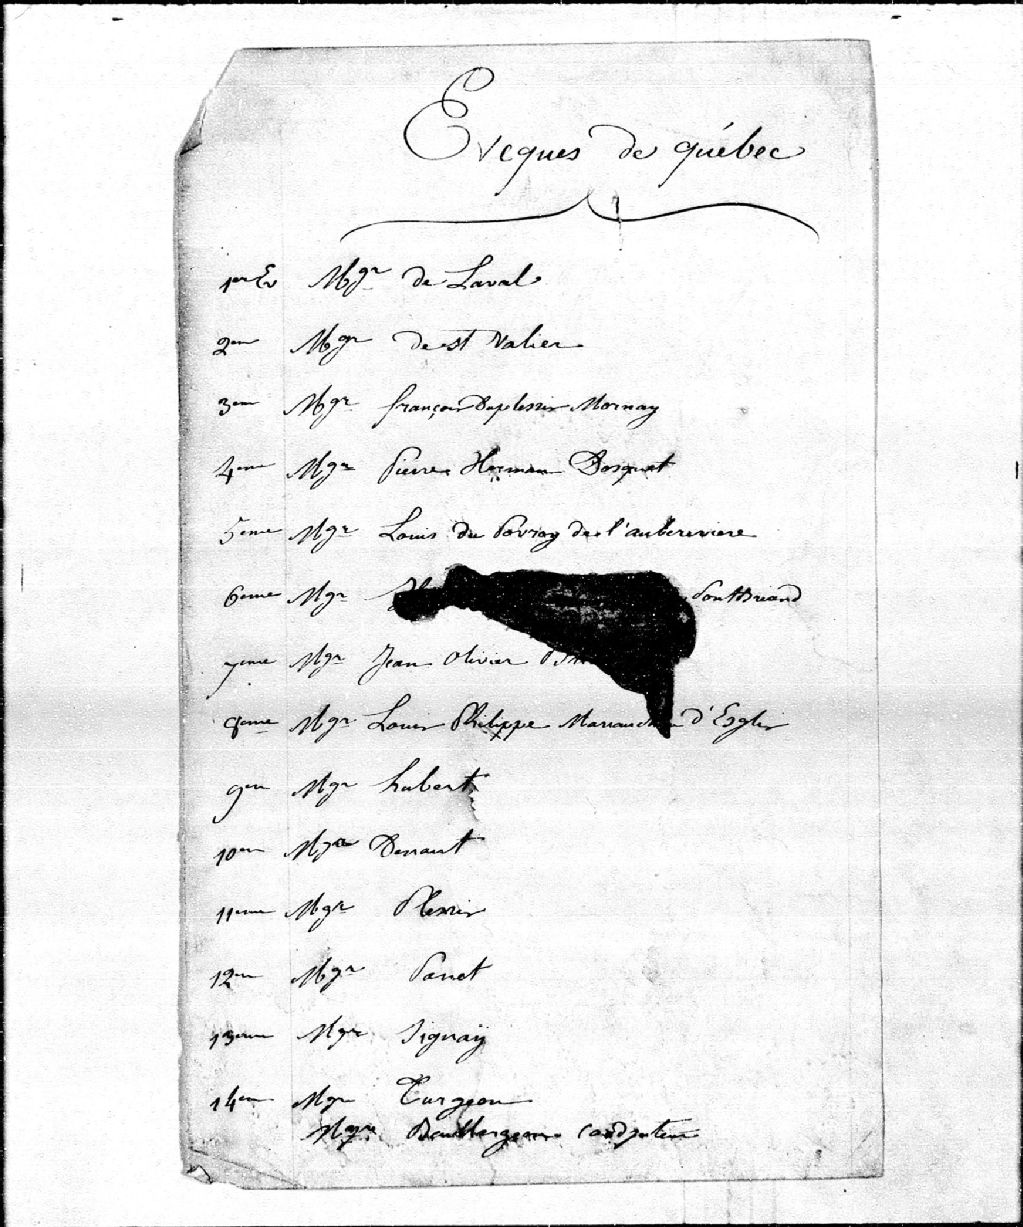 Eveques de québec
1er Ev Mgr de Laval
2em Mgr de st Valier
3em Mgr françois Duplessis Mornay
4eme Mgr Pierre Herman Dosquet
5eme Mgr Louis du Pourroy de l'auberiviere
6eme Mgr PontBriand
7eme Mgr Jean Olivier
8eme Mgr Louis Philippe d'Esglis
9em Mgr hubert
10em Mgr Denaut
11eme Mgr Plessis
12em Mgr Panet
13eme Mgr Signaÿ
14em Mgr Turgeon
Mgr Baillargeon Coadjuteur